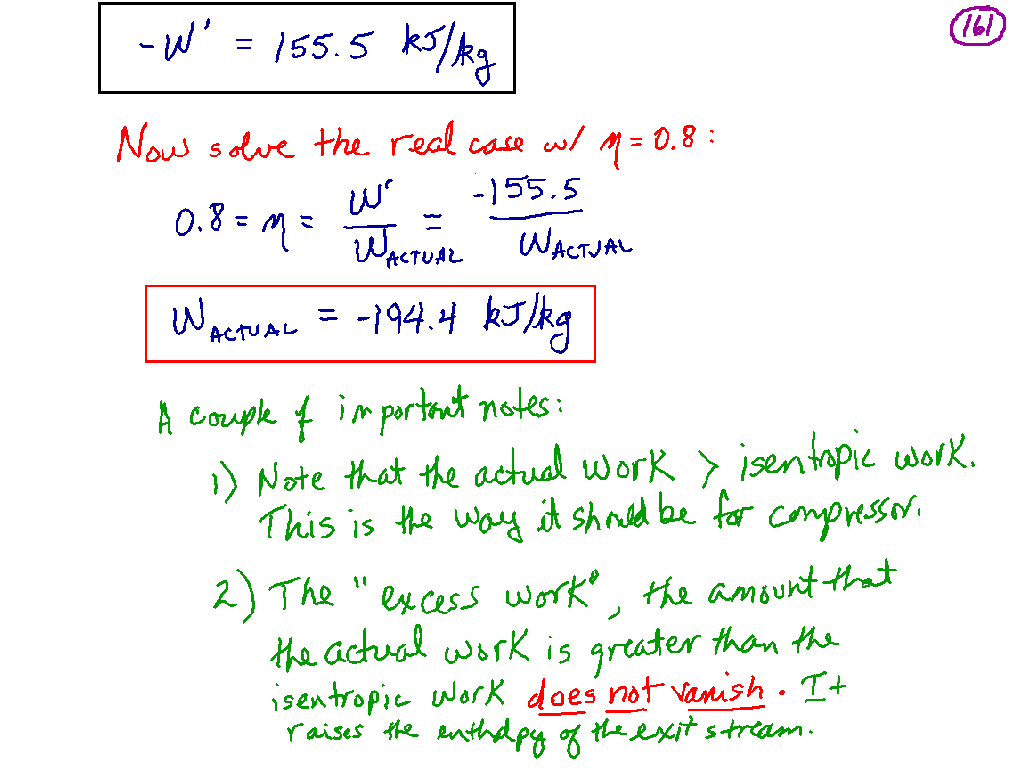 -W' = 155.5 kJ/kg
161
Now solve the real case w/ η = 0.8:
0.8 = η = W'/W_ACTUAL = -155.5/W_ACTUAL
W_ACTUAL = -194.4 kJ/kg
A couple of important notes:
1) Note that the actual work > isentropic work.
This is the way it should be for compressor.
2) The "excess work", the amount that
the actual work is greater than the
isentropic work does not vanish. It
raises the enthalpy of the exit stream.